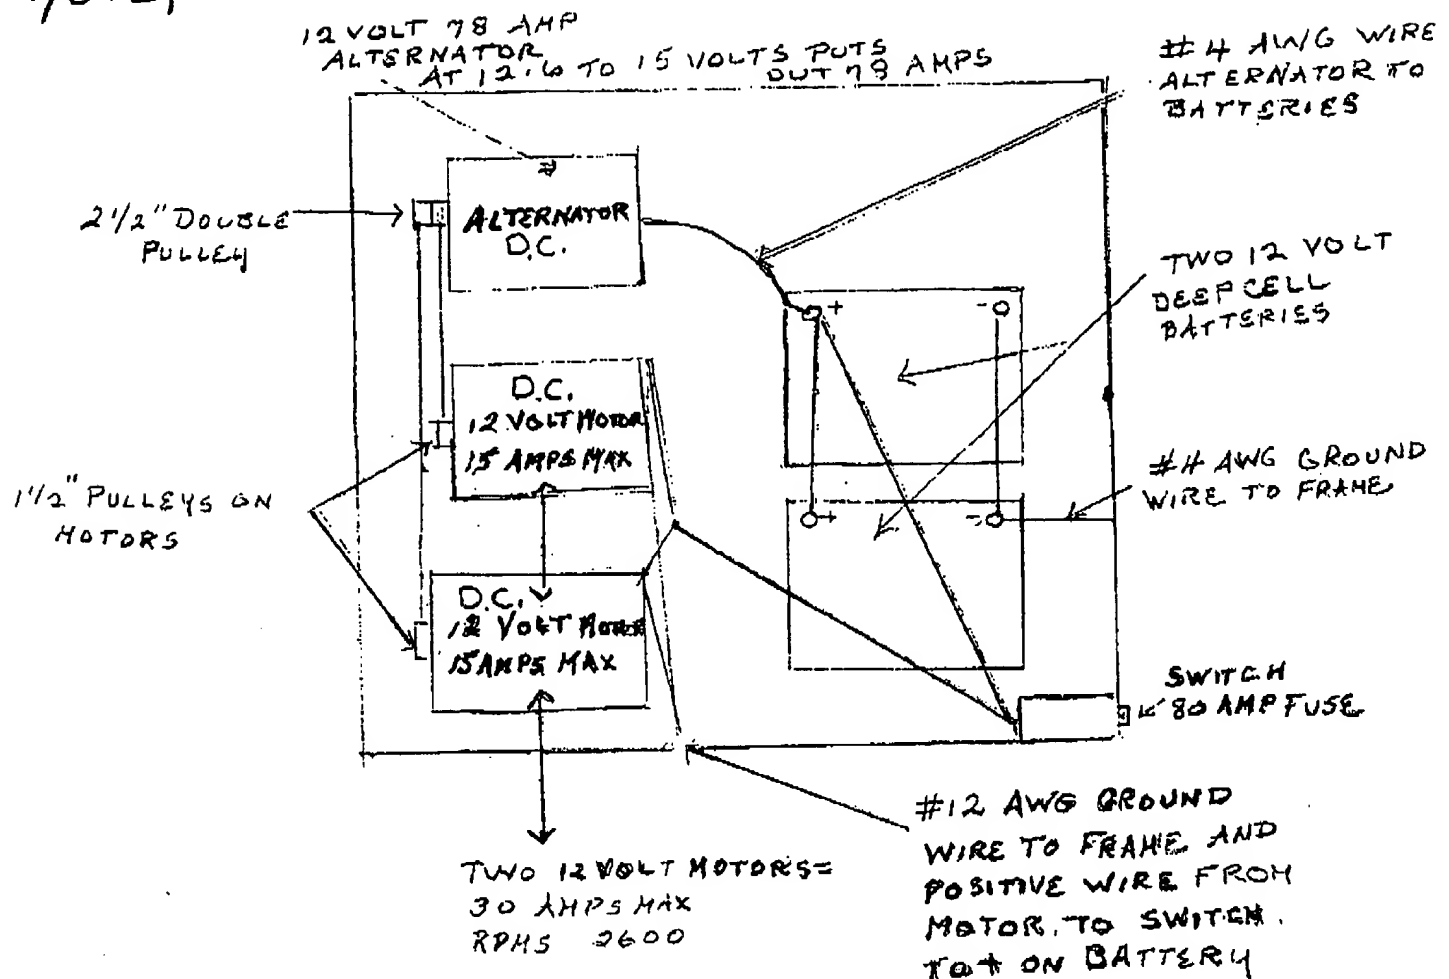 12 VOLT 78 AMP
ALTERNATOR
AT 12.6 TO 15 VOLTS PUTS
OUT 78 AMPS
#4 AWG WIRE
ALTERNATOR TO
BATTERIES
2 1/2" DOUBLE
PULLEY
ALTERNATOR
D.C.
TWO 12 VOLT
DEEP CELL
BATTERIES
+
-
D.C.
12 VOLT MOTOR
15 AMPS MAX
#4 AWG GROUND
WIRE TO FRAME
1 1/2" PULLEYS ON
MOTORS
+
-
D.C.
12 VOLT MOTOR
15 AMPS MAX
SWITCH
80 AMP FUSE
#12 AWG GROUND
WIRE TO FRAME AND
POSITIVE WIRE FROM
MOTOR. TO SWITCH.
TO + ON BATTERY
TWO 12 VOLT MOTORS=
30 AMPS MAX
RPMS 2600